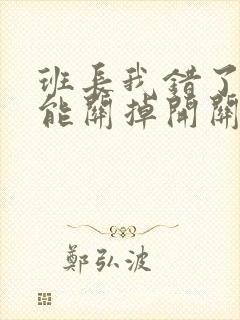 班长我错了
能關掉開關
鄭弘波